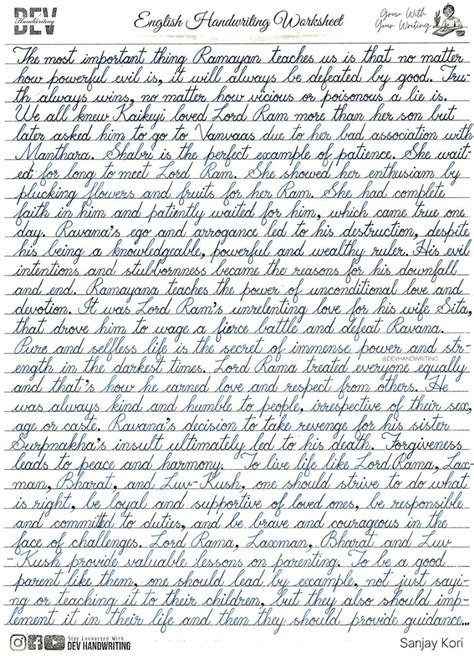 DEV
Handwriting
English Handwriting Worksheet
Grow With
Your Writing
The most important thing Ramayan teaches us is that no matter
how powerful evil is, it will always be defeated by good. Tru-
th always wins, no matter how vicious or poisonous a lie is.
We all knew Kaikeyi loved Lord Ram more than her son but
later asked him to go to Vanvaas due to her bad association with
Manthara. Shabri is the perfect example of patience. She wait-
ed for long to meet Lord Ram. She showed her enthusiam by
plucking flowers and fruits for her Ram. She had complete
faith in him and patiently waited for him, which came true one
day. Ravana's ego and arrogance led to his destruction, despite
his being a knowledgeable, powerful and wealthy ruler. His evil
intentions and stubbornness became the reasons for his downfall
and end. Ramayana teaches the power of unconditional love and
devotion. It was Lord Ram's unrelenting love for his wife Sita,
that drove him to wage a fierce battle and defeat Ravana.
Pure and selfless life is the secret of immense power and str-
@DEVHANDWRITING
ength in the darkest times. Lord Rama treated everyone equally
and that's how he earned love and respect from others. He
was always kind and humble to people, irrespective of their sex,
age or caste. Ravana's decision to take revenge for his sister
Surpnakha's insult ultimately led to his death. Forgiveness
leads to peace and harmony. To live life like Lord Rama, Lax-
man, Bharat, and Luv-Kush, one should strive to do what
is right, be loyal and supportive of loved ones, be responsible
and committed to duties, and be brave and courageous in the
face of challenges. Lord Rama, Laxman, Bharat and Luv
-Kush provide valuable lessons on parenting. To be a good
parent like them, one should lead by example, not just sayi-
ng or teaching it to their children, but they also should imp-
lement it in their life and then they should provide guidance...
Stay Connected With
DEV HANDWRITING
Sanjay Kori